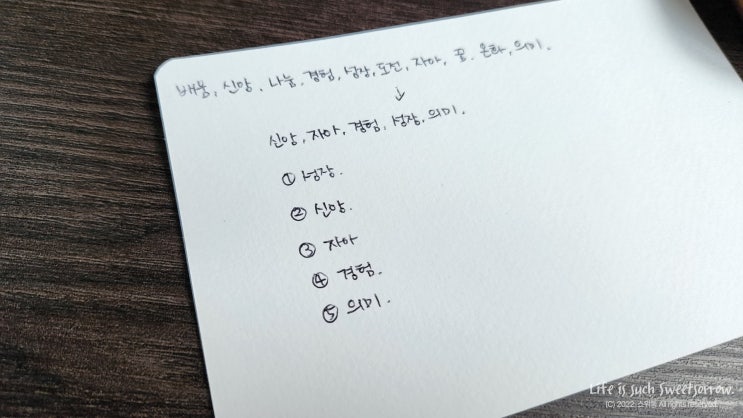 배움, 신앙, 나눔, 경험, 성장, 도전, 자아, 꿈, 온화, 의미.
↓
신앙, 자아, 경험, 성장, 의미.
① 성장.
② 신앙.
③ 자아
④ 경험.
⑤ 의미.
Life is such Sweetsorrow.
(C) 2022. All rights reserved.